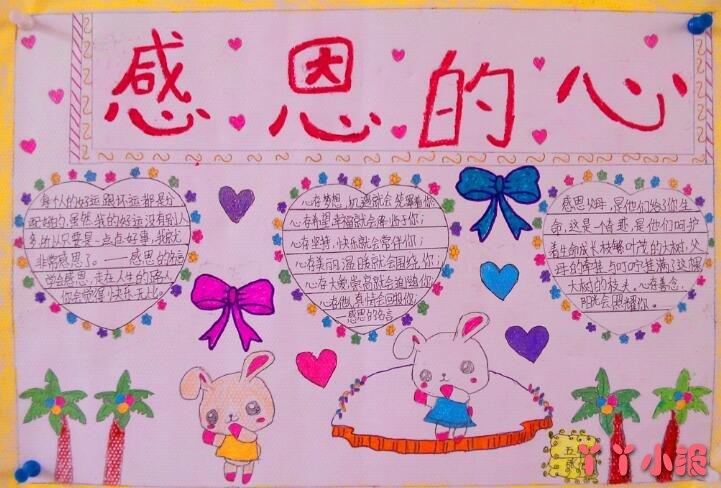 感恩的心
每个人的好运跟坏运都是分
配好的,虽然我的好运没有别人
多,所以只要是一点点好事,我就
非常感恩了。——感恩的名言
学会感恩,走在人生的路上
你会觉得快乐无比。
心存梦想,机遇就会笼罩着你;
心存希望,幸福就会降临于你;
心存坚持,快乐就会常伴你;
心存美丽,温暖就会围绕你;
心存大爱,崇高就会追随你;
心存他人,真情会回报你。
——感恩的名言
感恩父母,是他们给了你生
命,这是一个奇迹,是他们呵护
着生命成长枝繁叶茂的大树,父
母的牵挂与叮咛挂满了这棵
大树的枝头,心存善念,
阳光会照耀你。
丫丫小报